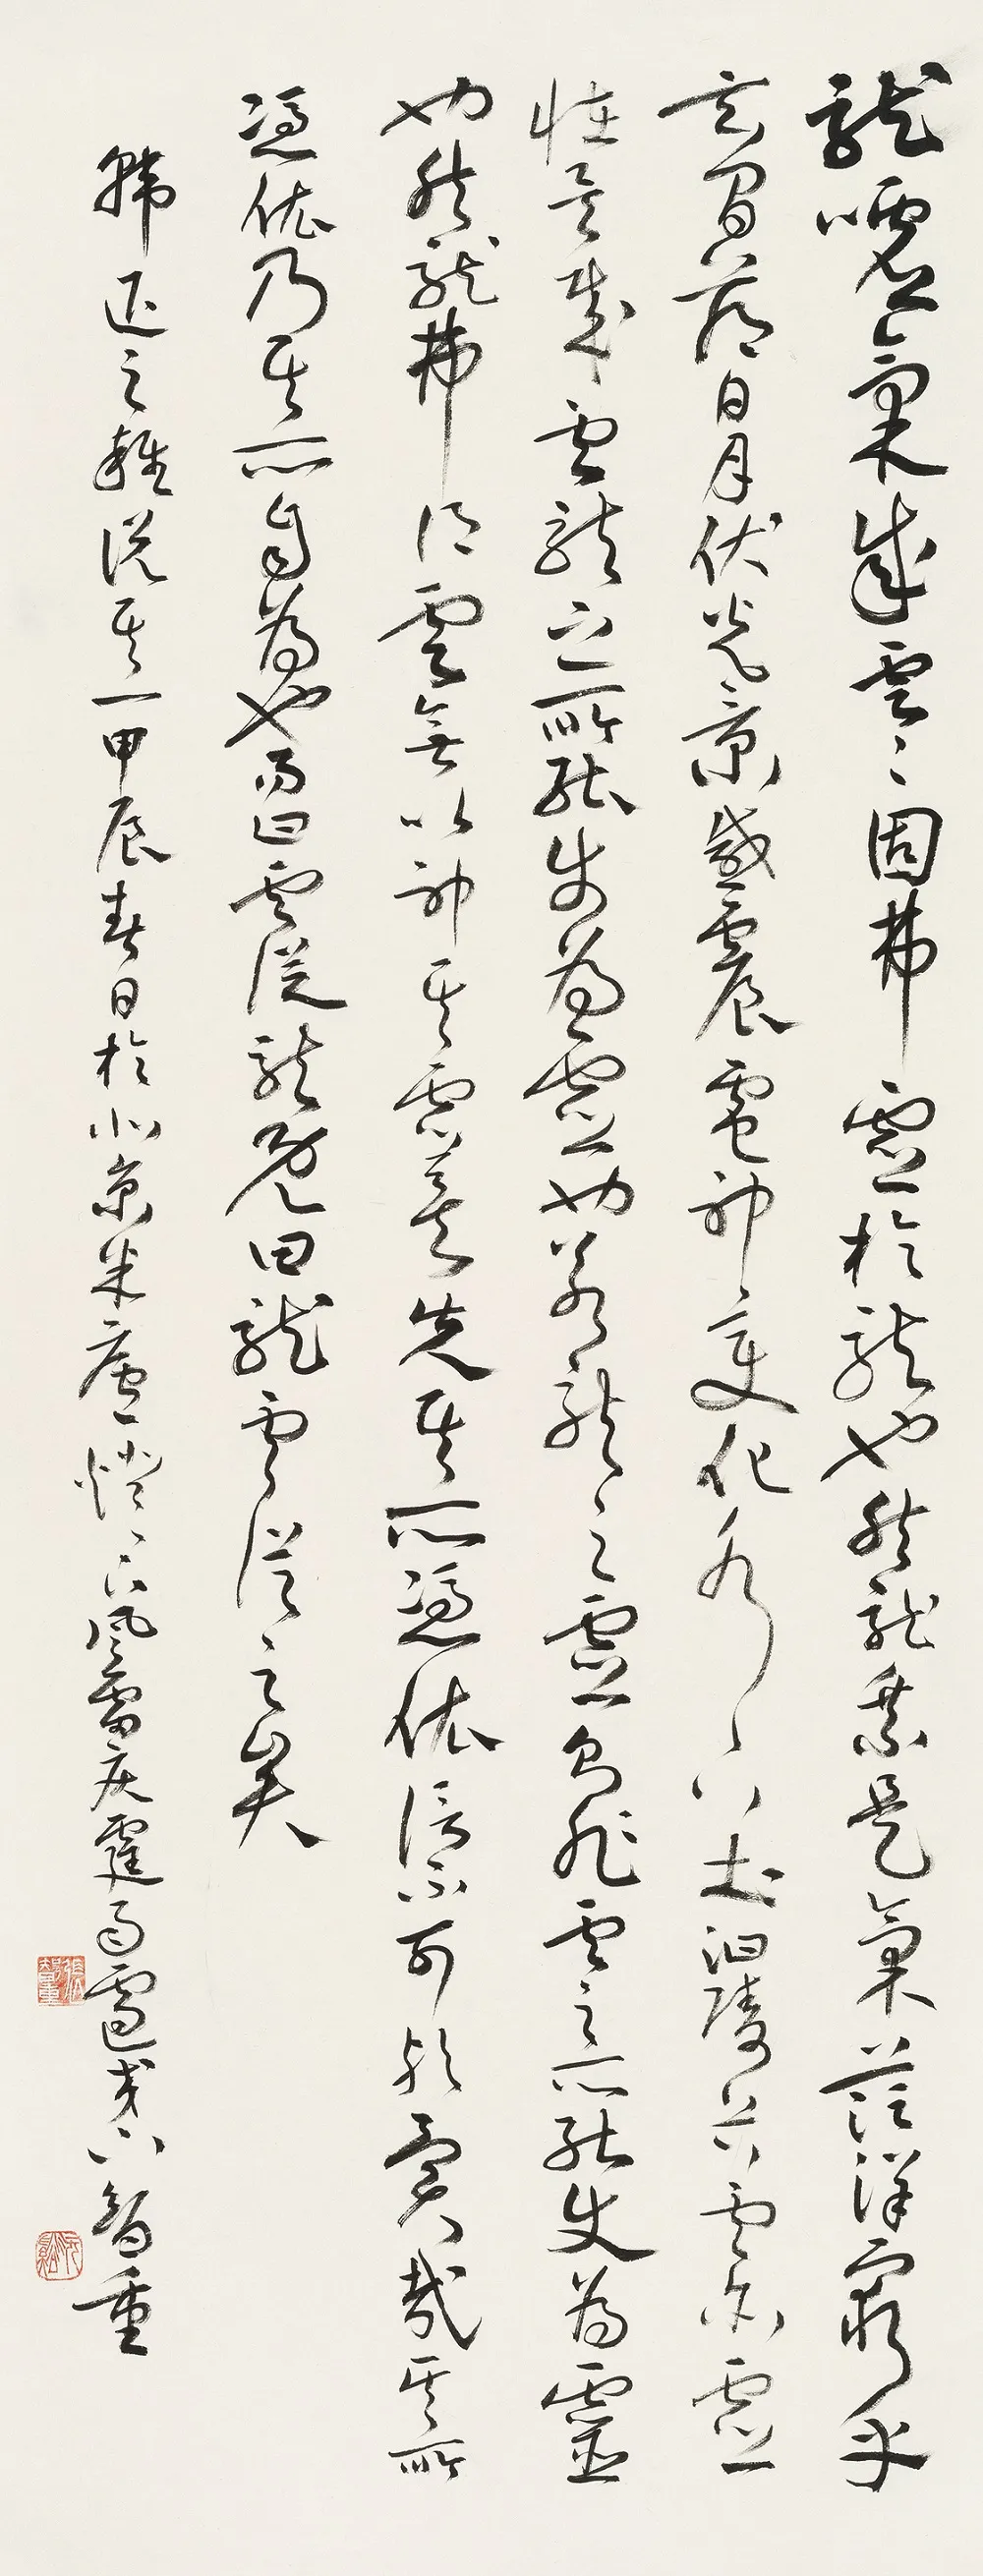 龍噓氣成雲〻固弗靈於龍也然龍乘是氣茫洋窮乎
玄間薄日月伏光景感震電神變化水下土汩陵谷雲亦靈
怪矣哉雲龍之所能使為靈也若龍之靈則非雲之所能使為靈
也然龍弗得雲無以神其靈矣失其所憑依信不可歟異哉其所
憑依乃其所自為也易曰雲從龍既曰龍雲從之矣
韓退之雜說其一甲辰春日於北京米廬燈下風雷疾霆雨智重